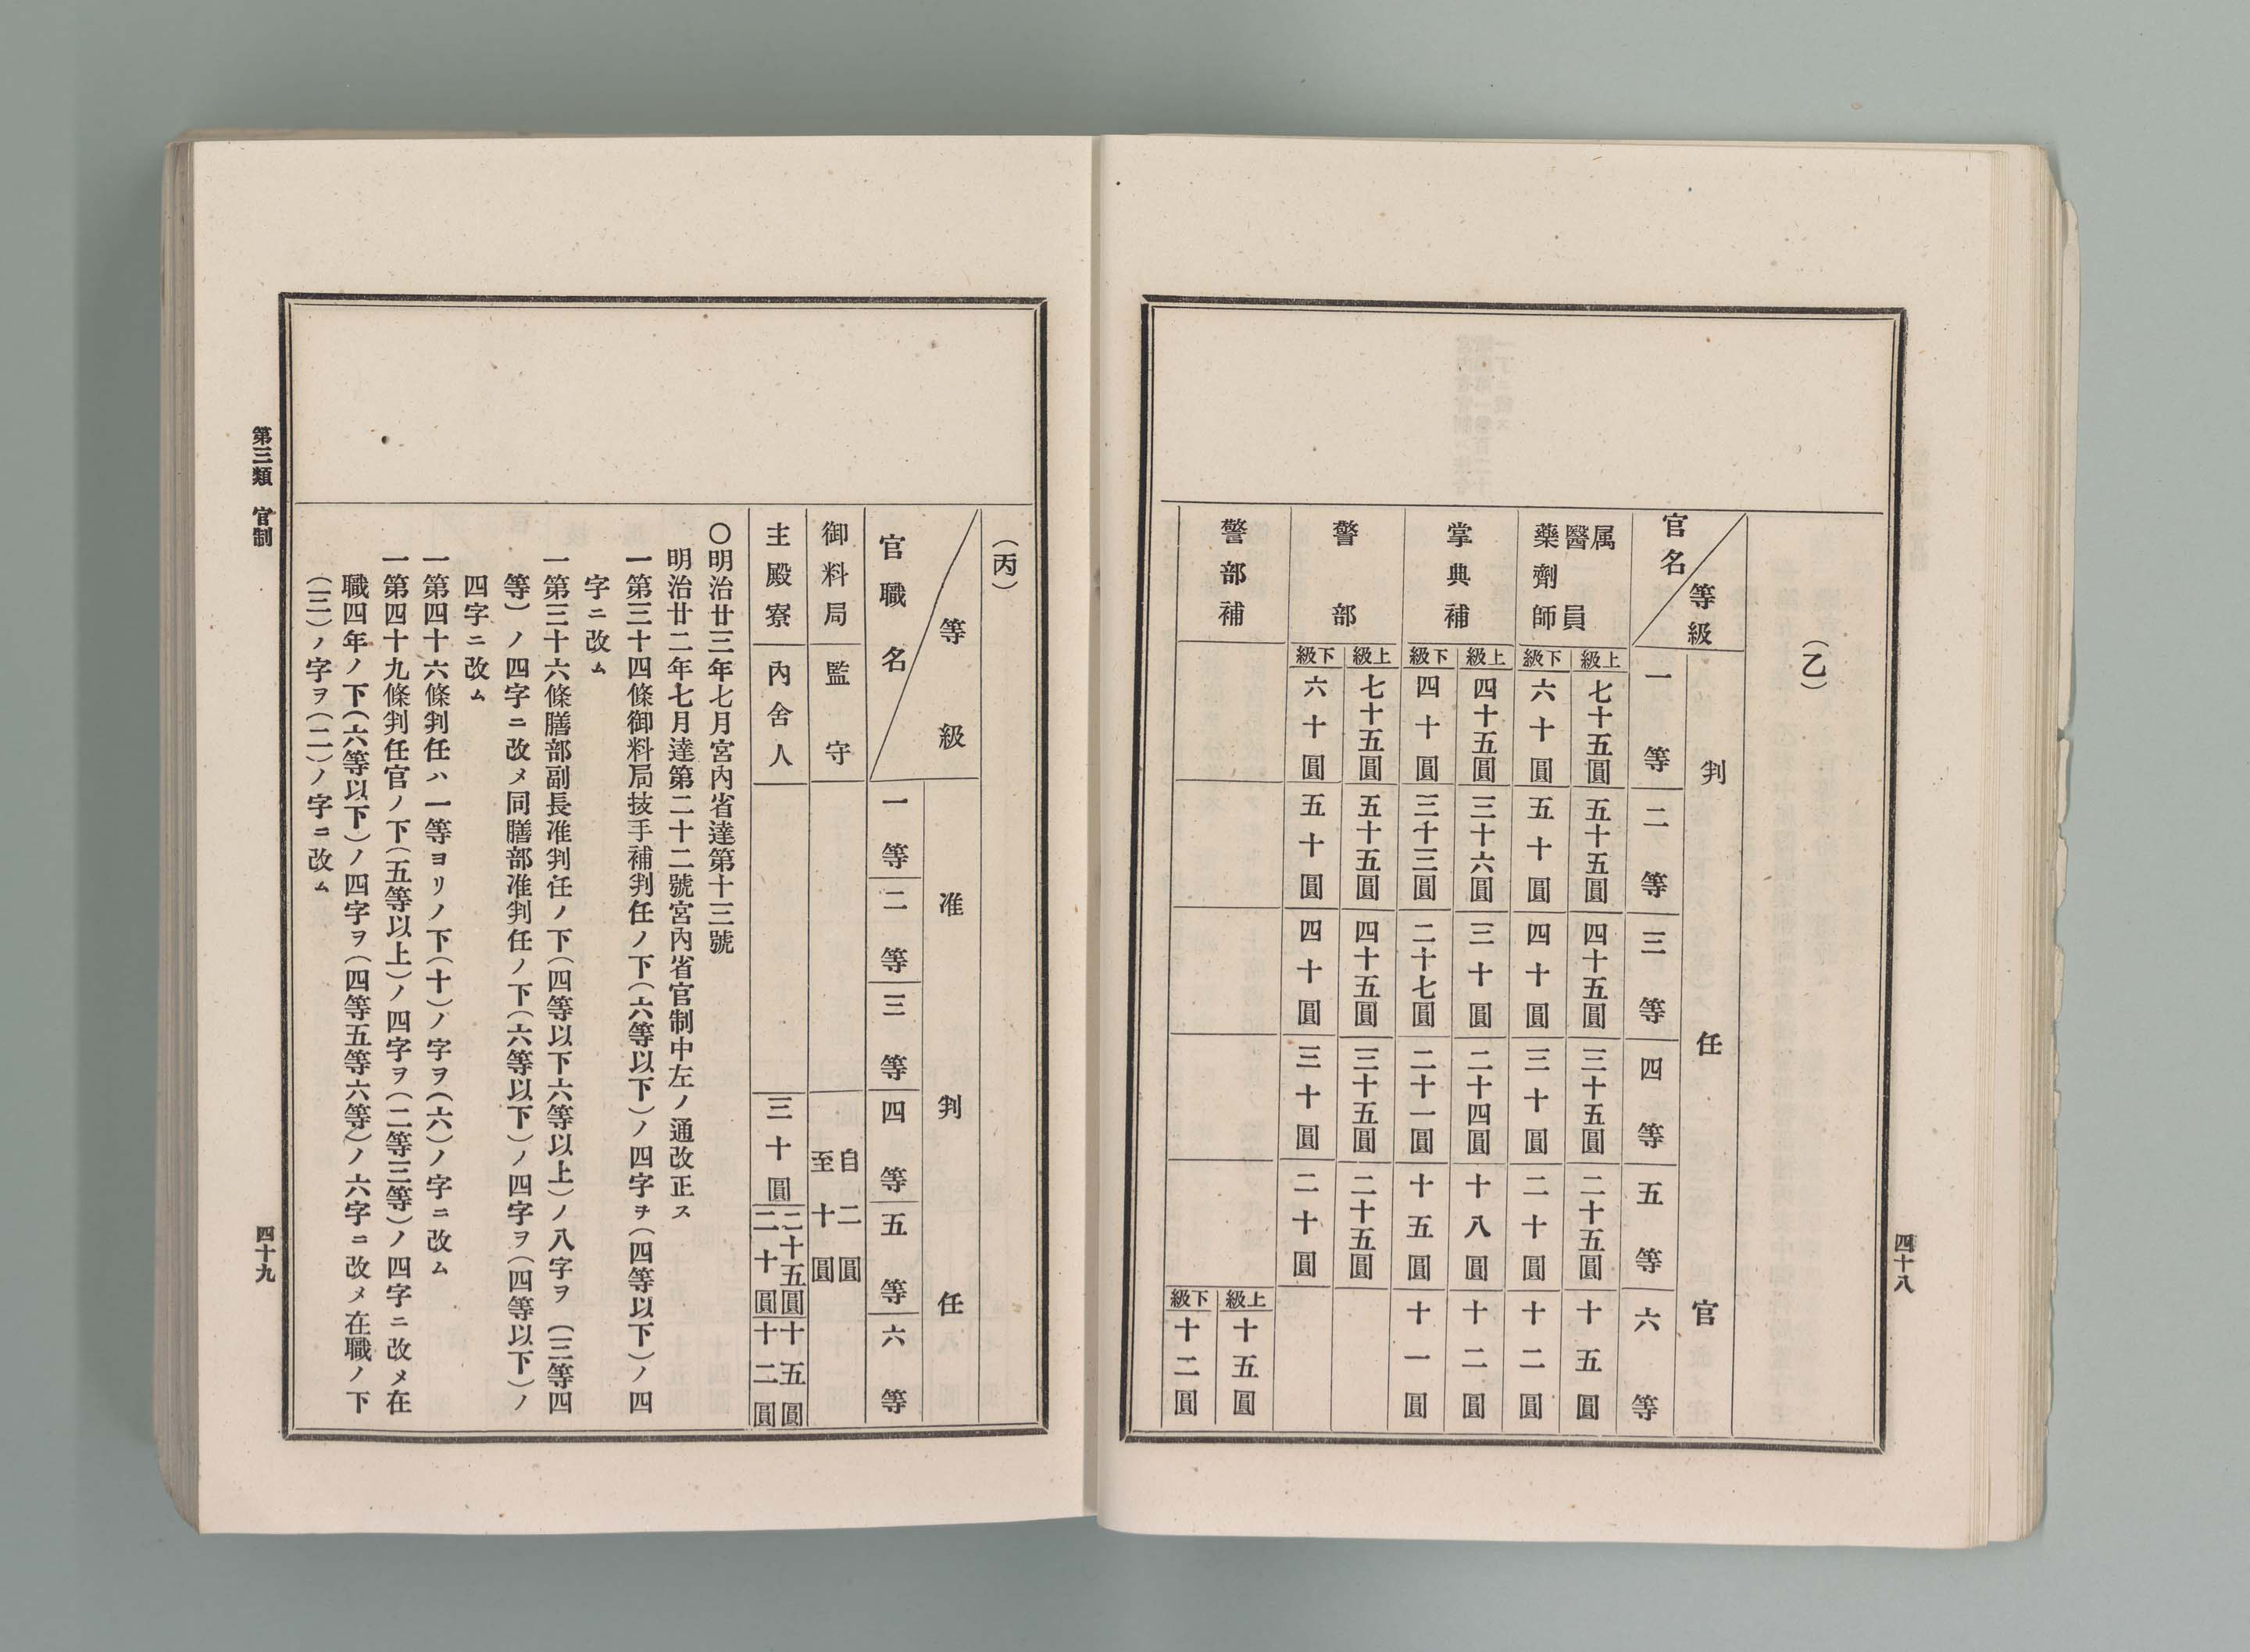 四十八
(乙)
官名 等級
判任官
一等
二等
三等
四等
五等
六等
属
醫員
藥劑師
上級 七十五圓 五十五圓 四十五圓 三十五圓 二十五圓 十五圓
下級 六十圓 五十圓 四十圓 三十圓 二十圓 十二圓
掌典補
上級 四十五圓 三十六圓 三十圓 二十四圓 十八圓 十二圓
下級 四十圓 三十三圓 二十七圓 二十一圓 十五圓 十一圓
警部
上級 七十五圓 五十五圓 四十五圓 三十五圓 二十五圓
下級 六十圓 五十圓 四十圓 三十圓 二十圓
警部補
上級 十五圓
下級 十二圓
(丙)
等級
官職名
准判任
一等
二等
三等
四等
五等
六等
御料局 監守 自二圓 至十圓
主殿寮 內舍人 三十圓 二十五圓 二十圓 十五圓 十二圓
〇明治廿三年七月宮內省達第十三號
明治廿二年七月達第二十二號宮內省官制中左ノ通改正ス
一第三十四條御料局技手補判任ノ下(六等以下)ノ四字ヲ(四等以下)ノ四
字ニ改ム
一第三十六條膳部副長准判任ノ下(四等以下六等以上)ノ八字ヲ(三等四
等)ノ四字ニ改メ同膳部准判任ノ下(六等以下)ノ四字ヲ(四等以下)ノ
四字ニ改ム
一第四十六條判任ハ一等ヨリノ下(十)ノ字ヲ(六)ノ字ニ改ム
一第四十九條判任官ノ下(五等以上)ノ四字ヲ(二等三等)ノ四字ニ改メ在
職四年ノ下(六等以下)ノ四字ヲ(四等五等六等)ノ六字ニ改メ在職ノ下
(三)ノ字ヲ(二)ノ字ニ改ム
第三類 官制
四十九